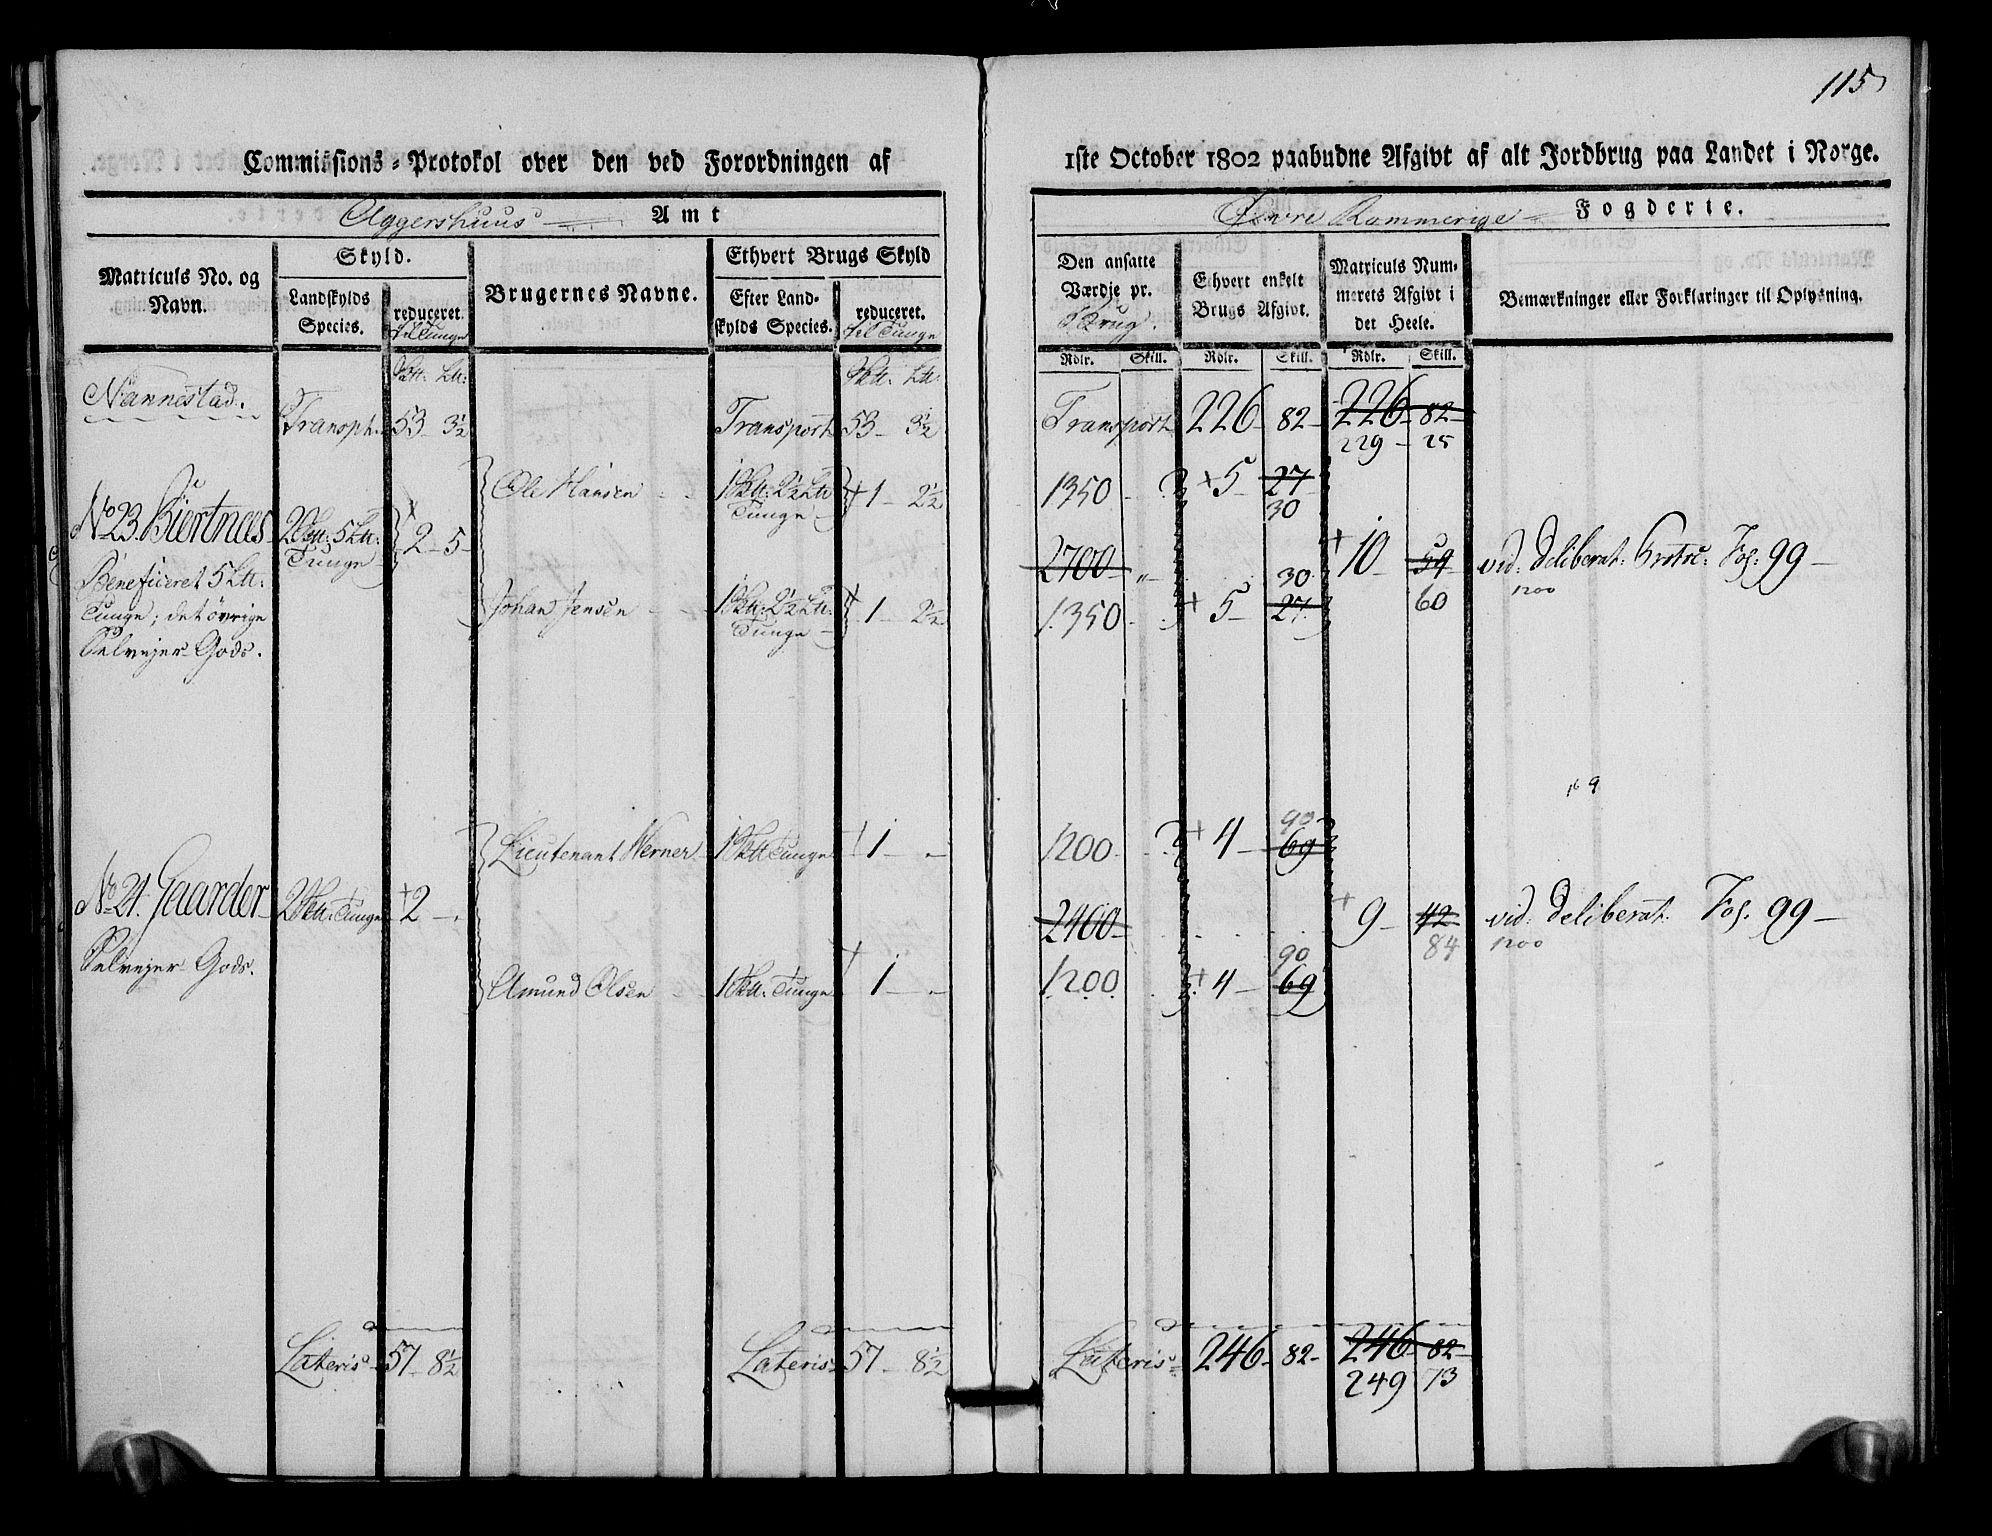 115
Commissions-Protokol over den ved Forordningen af 1ste October 1802 paabudne Afgivt af alt Jordbrug paa Landet i Norge.
Aggershuus Amt
Øevre Rommerige Fogderie.
Matriculs No. og Navn.
Skyld.
Landskylds Species.
reduceret. til Tunge
Brugernes Navne.
Ethvert Brugs Skyld
Efter Landskylds Species.
reduceret. til Tunge
Den ansatte Værdje pr. Brug.
Ehvert enkelt Brugs Afgivt.
Matriculs Nummerets Afgivt i det Heele.
Bemærkninger eller Forklaringer til Oplysning.
Rdlr. Skill. Rdlr. Skill. Rdlr. Skill.
Nannestad.
Transpt. 53 - 3½ Transport 53 - 3½ Transport 226 82 - 226 - 82 -
229 - 25
Ole Hansen 1 Skll: 2½ Lll Tunge + 1 - 2½ 1350 + 5 - 27
30
No 23. Kiertnæs 2 Skll: 5 Lll: Tunge 2 - 5 - 2700 - „ - + 10 - 54 vid: Deliberat: Protoc: Fol: 99 -
60
1200
Beneficeret 5 Lll:
Tunge; det övrige
Selvejer-Gods.
Johan Jensen 1 Skll: 2½ Lll: Tunge + 1 - 2½ 1350 + 5 - 30 27
169
Lieutenant Werner 1 Skll Tunge + 1 - - 1200 + 4 - 90 69
No 24. Gaarder 2 Skll: Tunge + 2 - . 2400 - + 9 - 42 vid: Deliberat. Fol. 99 -
84
1200
Selvejer-Gods.
Amund Olsen 1 Skll: Tunge + 1 - - 1200 + 4 - 90 69
Lateris - 57 - 8½ Lateris - 57 - 8½ Lateris 246 - 82 - 246 - 82 -
249 73